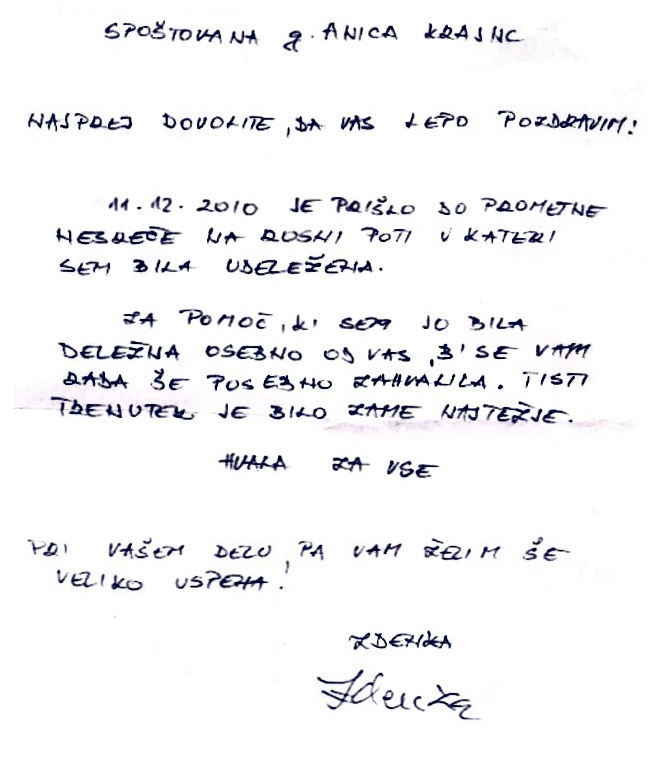 SPOŠTOVANA g. ANICA KRAJNC
NAJPREJ DOVOLITE, DA VAS LEPO POZDRAVIM!
11.12.2010 JE PRIŠLO DO PROMETNE
NESREČE NA RUSKI POTI V KATERI
SEM BILA UDELEŽENA.
ZA POMOČ, KI SEM JO BILA
DELEŽNA OSEBNO OD VAS, B' SE VAM
RADA ŠE POSEBNO ZAHVALILA. TISTI
TRENUTEK JE BILO ZAME NAJTEŽJE.
HVALA ZA VSE
PRI VAŠEM DELU, PA VAM ŽELIM ŠE
VELIKO USPEHA!
ZDENKA
Zdenka